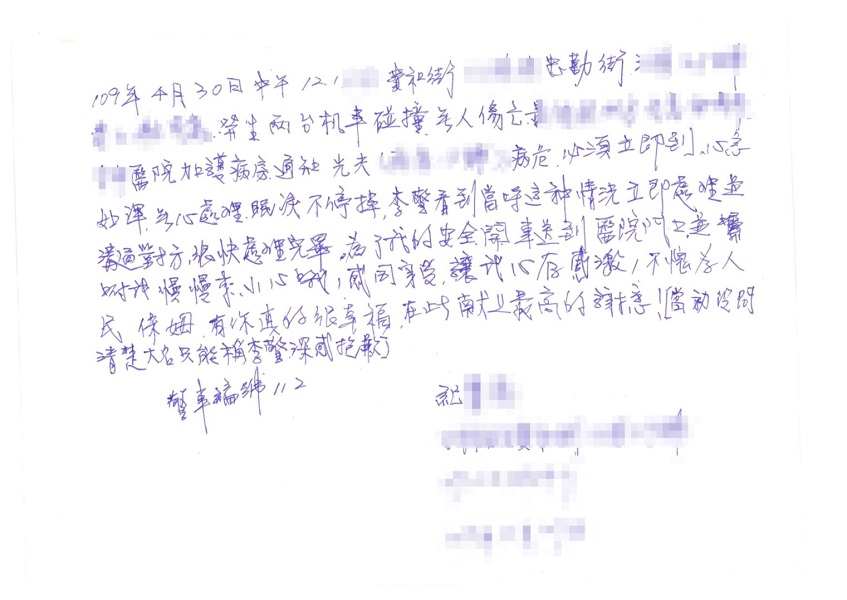 109年4月30日中午12.1 實和街 忠勤街
發生兩台机車碰撞 無人傷亡
醫院加護病房通知先夫 病危,必須立即到.心急
如渾,無心處理.眼淚不停掉,李警看到當時這种情況立即處理並
溝通對方,很快處理完畢。為了我的安全開車送到醫院門口並
慢慢來,小心 ,感同身受,讓我心存感激,不愧為人
民保姆,有你真的很幸福,在此献上最高的謝意!(當初沒問
清楚大名只能稱李警深感抱歉)
警車編號112